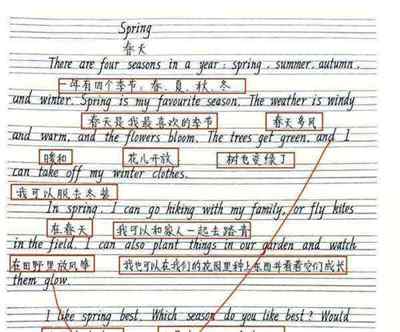 Spring
春天
There are four seasons in a year: spring, summer, autumn,
一年有四个季节：春、夏、秋、冬
and winter. Spring is my favourite season. The weather is windy
春天是我最喜欢的季节 春天多风
and warm, and the flowers bloom. The trees get green, and I
暖和 花儿开放 树也变绿了
can take off my winter clothes.
我可以脱去冬装
In spring, I can go hiking with my family, or fly kites
在春天 我可以和家人一起去踏青
in the field. I can also plant things in our garden and watch
在田野里放风筝 我也可以在我们的花园里种上东西并看着它们成长
them glow.
I like spring best. Which season do you like best? Would